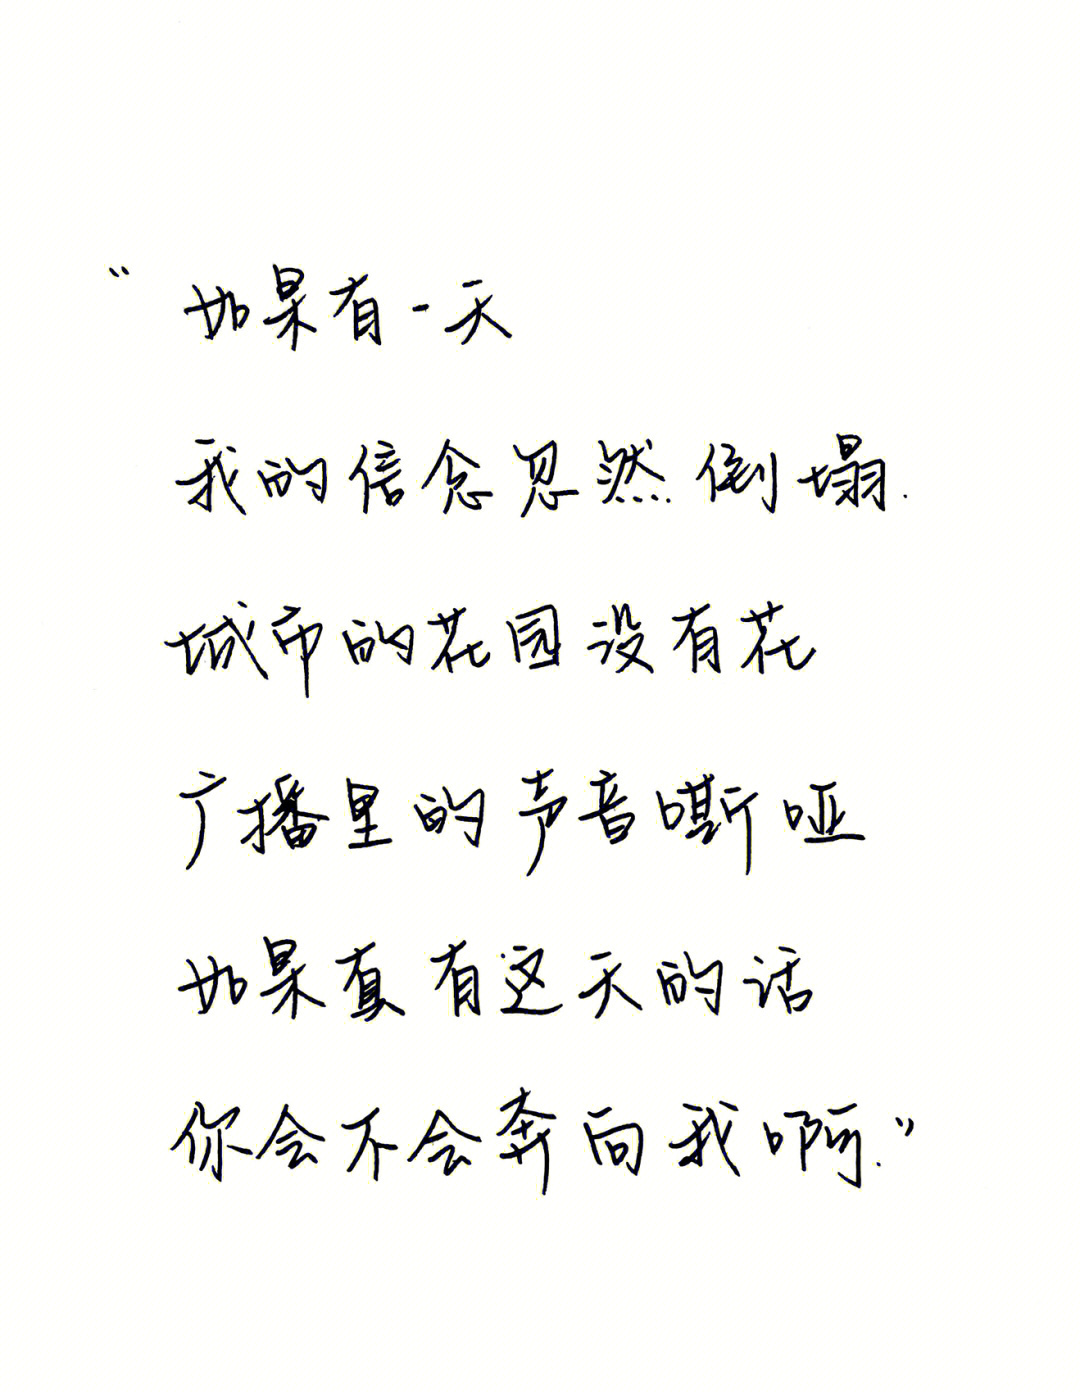 “如果有一天
我的信念忽然倒塌.
城市的花园没有花
广播里的声音嘶哑
如果真有这天的话
你会不会奔向我啊.”